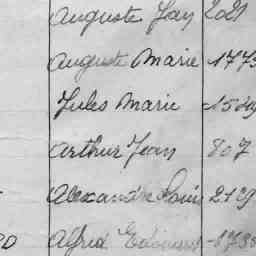 Auguste Jay 2021
Auguste Marie 1773
Jules Marie
Arthur Jean 807
Alexandre Louis 219
Alfred Edouard